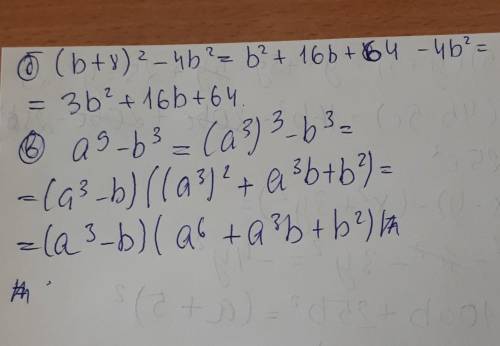 б) (b+8)² - 4b² = b² + 16b + 64 - 4b² =
= 3b² + 16b + 64.
в) a⁹ - b³ = (a³)³ - b³ =
= (a³ - b) ((a³)² + a³b + b²) =
= (a³ - b) ( a⁶ + a³b + b²)